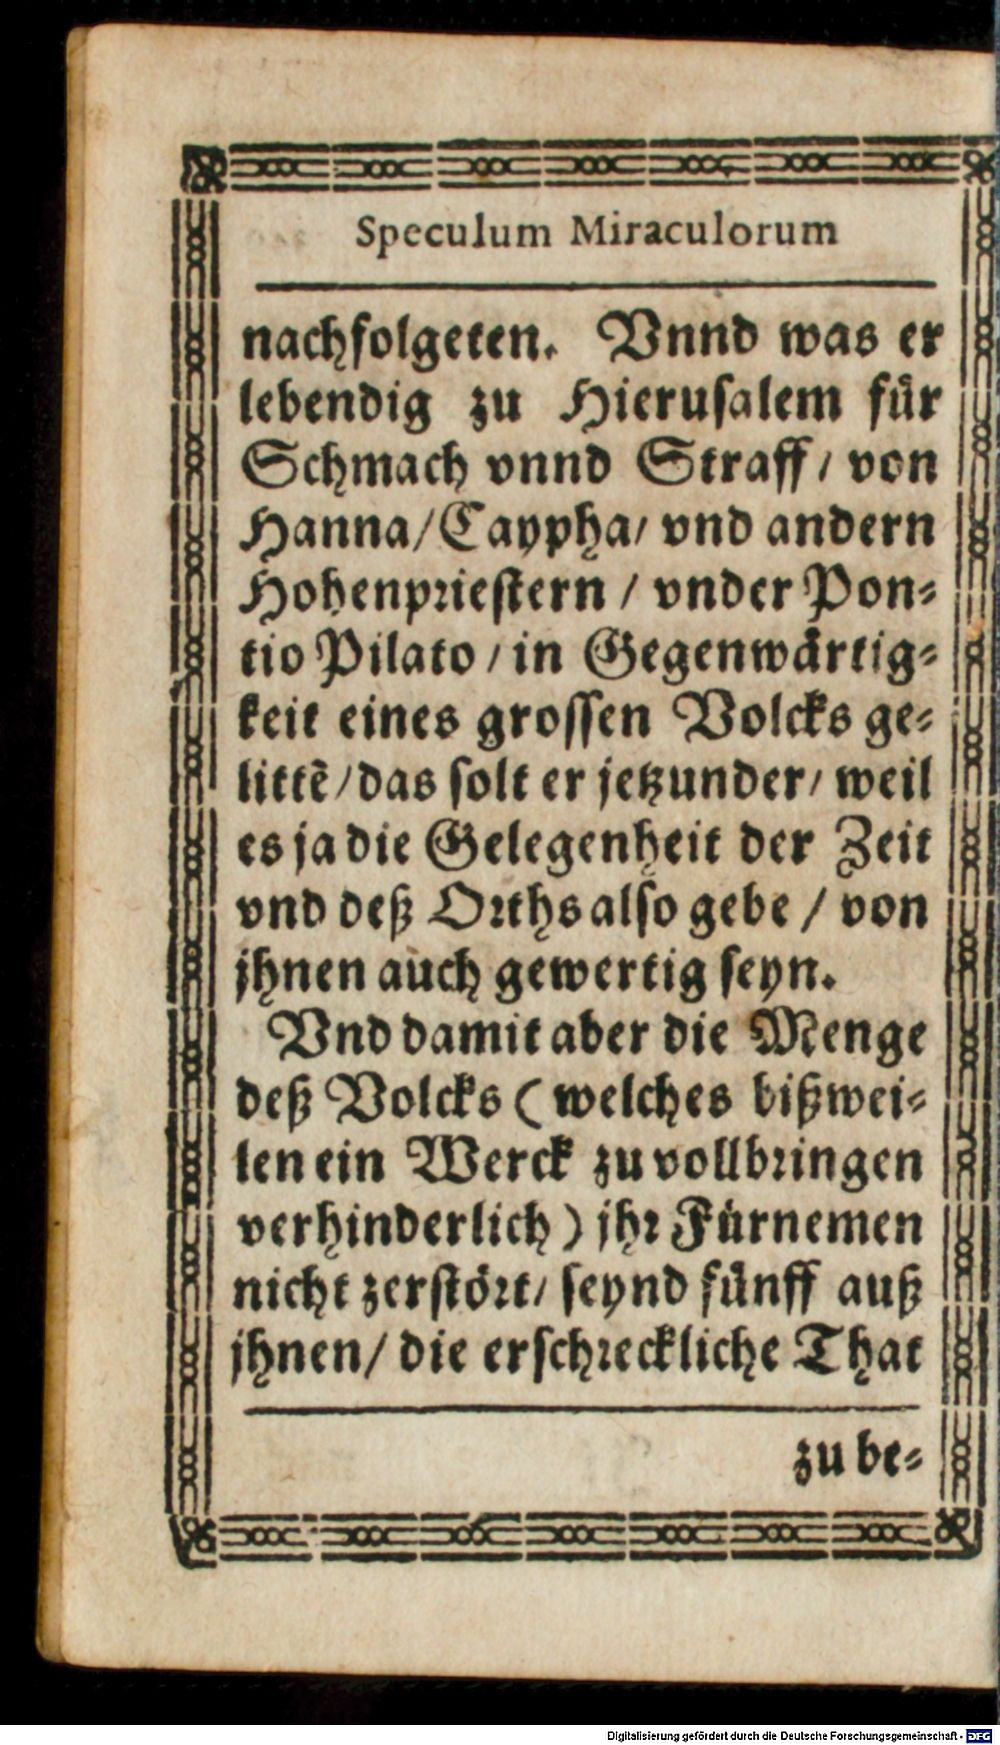 Speculum Miraculorum
nachfolgeten. Vnnd was er
lebendig zu Hierusalem fůr
Schmach vnnd Straff / von
Hanna / Caypha / vnd andern
Hohenpriestern / vnder Pon-
tio Pilato / in Gegenwårtig-
keit eines grossen Volcks ge-
littē / das solt er jetzunder / weil
es ja die Gelegenheit der Zeit
vnd deß Orths also gebe / von
jhnen auch gewertig seyn.
Vnd damit aber die Menge
deß Volcks ( welches bißwei-
len ein Werck zu vollbringen
verhinderlich ) jhr Fürnemen
nicht zerstört / seynd fůnff auß
jhnen / die erschreckliche That
zu be-
Digitalisierung gefördert durch die Deutsche Forschungsgemeinschaft - DFG